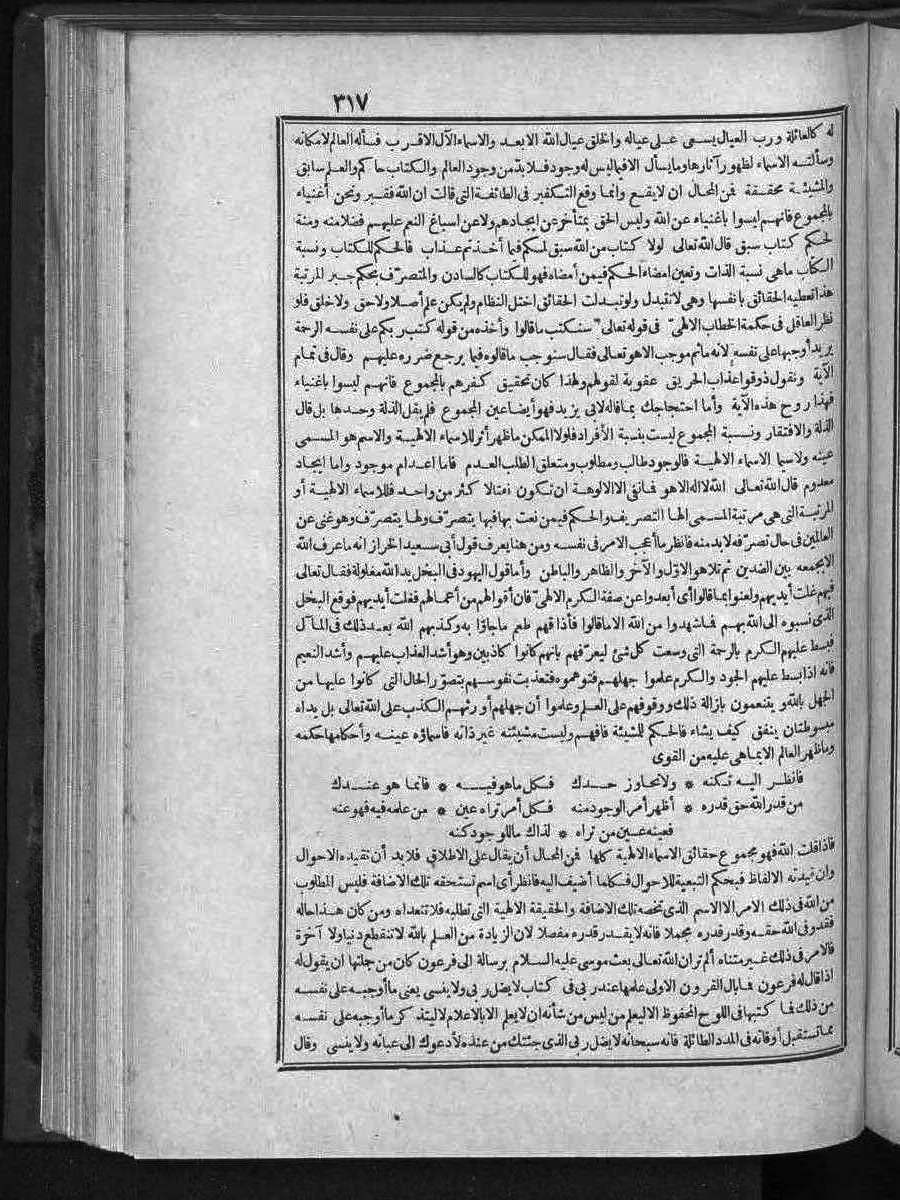 ٣١٧
له كالعائلة ورب العيال يسعى على عياله والخلق عيال الله الابعد والاسماء الآل الاقرب فسأله العالم لامكانه
وسألته الاسماء لظهور آثارها وما يسأل الا فيما ليس له وجود فلا بد من وجود العالم والكتاب حاكم والعلم سابق
والمشيئة محققة فمن المحال ان لا يقع وانما وقع التكفير فى الطائفة التى قالت ان الله فقير ونحن أغنياء
بالمجموع فانهم ليسوا باغنياء عن الله وليس الحق بمتأخر عن ايجادهم ولا عن اسباغ النعم عليهم فضلا منه ومنة
لحكم كتاب سبق قال الله تعالى لولا كتاب من الله سبق لمسكم فيما أخذتم عذاب فالحكم للكتاب ونسبة
الكتاب ما هى نسبة الذات وتعين امضاء الحكم فيمن أمضاه فهو للكتاب كالسادن والمتصرف بحكم جبر المرتبة
هذا تعطيه الحقائق بانفسها وهى لا تتبدل ولو تبدلت الحقائق اختل النظام ولم يكن علم أصلا ولا حق ولا خلق فلو
نظر العاقل فى حكمة الخطاب الالهىّ فى قوله تعالى سنكتب ما قالوا وأخذه من قوله كتب ربكم على نفسه الرحمة
يريد أوجبها على نفسه لانه ما ثم موجب الا هو تعالى فقال سنوجب ما قالوه فيما يرجع ضرره عليهم وقال فى تمام
الآية ونقول ذوقوا عذاب الحريق عقوبة لقولهم ولهذا كان تحقيق كفرهم بالمجموع فانهم ليسوا باغنياء
فهذا روح هذه الآية وأما احتجاجك بما قاله لابى يزيد فهو أيضا عين المجموع فلم يقل الذلة وحدها بل قال
الذلة والافتقار ونسبة المجموع ليست بنسبة الأفراد فلولا الممكن ما ظهر أثر للاسماء الالهية والاسم هو المسمى
عينه ولا سيما الاسماء الالهية فالوجود طالب ومطلوب ومتعلق الطلب العدم فاما اعدام موجود واما ايجاد
معدوم قال الله تعالى الله لا اله الا هو فما نفى الا الالوهة ان تكون نعتا لا كثر من واحد فللاسماء الالهية أو
المرتبة التى هى مرتبة المسمى الها التصريف والحكم فيمن نعت بها فبها يتصرّف ولها يتصرّف وهو غنى عن
العالمين فى حال تصرّفه لا بد منه فانظر ما أعجب الامر فى نفسه ومن هنا يعرف قول أبى سعيد الخراز انه ما عرف الله
الا بجمعه بين الضدين ثم تلا هو الاوّل والآخر والظاهر والباطن وأما قول اليهود فى البخل يد الله مغلولة فقال تعالى
فيهم غلت أيديهم ولعنوا بما قالوا أى أبعدوا عن صفة الكرم الالهىّ فان أقوالهم من أعمالهم فغلت أيديهم فوقع البخل
الذى نسبوه الى الله بهم فما شهدوا من الله الا ما قالوا فأذاقهم طعم ما جاؤا به وكذبهم الله بعد ذلك فى المآل
فبسط عليهم الكرم بالرحمة التى وسعت كل شئ ليعرّفهم بانهم كانوا كاذبين وهو أشد العذاب عليهم وأشد النعيم
فانه اذا بسط عليهم الجود والكرم علموا جهلهم فتوهموه فتعذبت نفوسهم بتصوّر الحال التى كانوا عليها من
الجهل بالله ويتنعمون بازالة ذلك ووقوفهم على العلم وعلموا أن جهلهم أورثهم الكذب على الله تعالى بل يداه
مبسوطتان ينفق كيف يشاء فالحكم للمشيئة فافهم وليست مشيئته غير ذاته فاسماؤه عينه وأحكامها حكمه
وما ظهر العالم الا بما هى عليه من القوى
فانظر اليه تكنه * ولا تجاوز حدك فكل ما هو فيه * فانما هو عندك
من قدر الله حق قدره * أظهر أمر الوجود منه فكل أمر تراه عين * من علمه فيه فهو عنه
فعينه عين من تراه * لذاك ما للوجود كنه
فاذا قلت الله فهو مجموع حقائق الاسماء الالهية كلها فمن المحال أن يقال على الاطلاق فلا بد أن تقيده الاحوال
وان قيدته الالفاظ فبحكم التبعية للاحوال فكلما أضيف اليه فانظر أى اسم تستحقه تلك الاضافة فليس المطلوب
من الله فى ذلك الامر الا الاسم الذى تخصه تلك الاضافة والحقيقة الالهية التى تطلبه فلا تتعداه ومن كان هذا حاله
فقد وفى الله حقه وقدر قدره مجملا فانه لا يقدر قدره مفصلا لان الزيادة من العلم بالله لا تنقطع دنيا ولا آخرة
فالامر فى ذلك غير متناه ألم تر ان الله تعالى بعث موسى عليه السلام برسالة الى فرعون كان من جملتها ان يقول له
اذا قال له فرعون فما بال القرون الاولى علمها عند ربى فى كتاب لا يضل ربى ولا ينسى يعنى ما أوجبه على نفسه
من ذلك فما كتبها فى اللوح المحفوظ الا ليعلم من ليس من شأنه ان لا يعلم الا بالاعلام لا ليتذكر ما أوجبه على نفسه
مما تستقبل أوقاته فى المدد الطائلة فانه سبحانه لا يضل ربى الذى جئتك من عنده لأدعوك الى عبادته ولا ينسى وقال